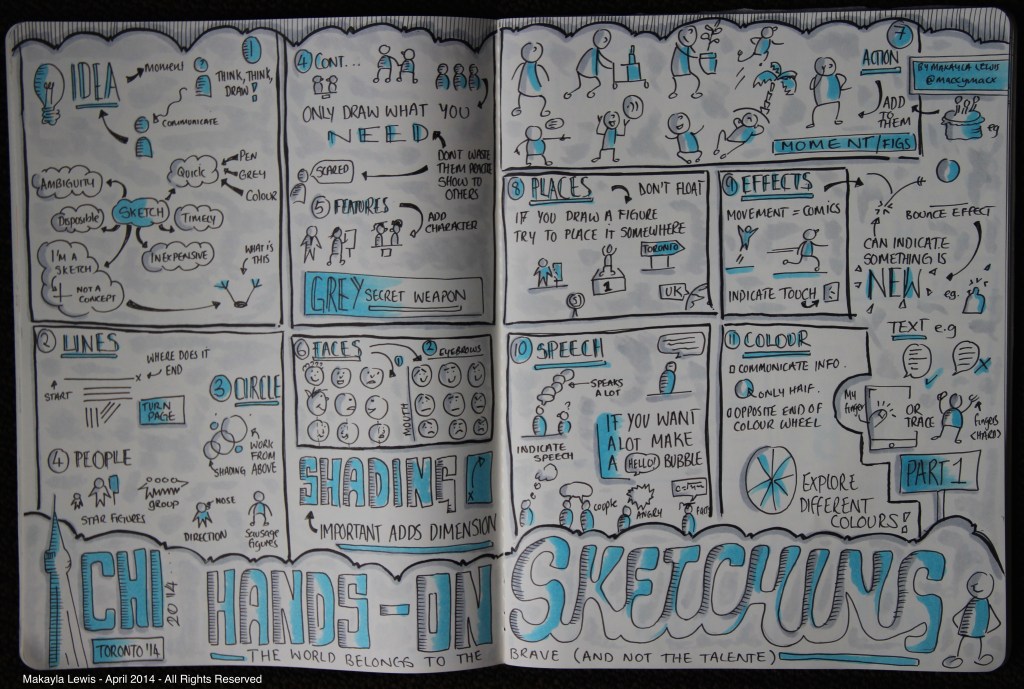 1
IDEA
MOMENT
THINK, THINK,
DRAW!
COMMUNICATE
AMBIGUITY
Disposable
SKETCH
Quick
PEN
GREY
COLOUR
TIMELY
INEXPENSIVE
I'M A
SKETCH
NOT A
CONCEPT
WHAT IS
THIS
2 LINES
WHERE DOES IT
END
START
TURN
PAGE
3 CIRCLE
WORK
FROM
ABOVE
SHADING
4 PEOPLE
STAR FIGURES
group
NOSE
DIRECTION
Sausage
figures
4 CONT...
ONLY DRAW WHAT YOU
NEED
DONT WASTE
SHOW TO
OTHERS
SCARED
5 FEATURES
ADD
CHARACTER
GREY SECRET WEAPON
6 FACES
1
2 EYEBROWS
MOUTH
SHADING!
IMPORTANT ADDS DIMENSION
7
ACTION
BY MAKAYLA LEWIS
@MACCYMACX
ADD
TO
THEM
eg
MOMENT/FIGS
8 PLACES
DON'T FLOAT
IF YOU DRAW A FIGURE
TRY TO PLACE IT SOMEWHERE
TORONTO
1
UK
9 EFFECTS
MOVEMENT = COMICS
INDICATE TOUCH
BOUNCE EFFECT
CAN INDICATE
SOMETHING IS
NEW
eg.
TEXT e.g
10 SPEECH
SPEAKS
A LOT
INDICATE
SPEECH
IF YOU WANT
A LOT MAKE
A HELLO! BUBBLE
COUPLE
ANGRY
11 COLOUR
COMMUNICATE INFO.
ONLY HALF.
OPPOSITE END OF
COLOUR WHEEL
EXPLORE
DIFFERENT
COLOURS!
My
finger
OR
TRACE
FINGERS
(HAIRD)
PART 1
CHI 2014
TORONTO '14
HANDS-ON SKETCHING
THE WORLD BELONGS TO THE BRAVE (AND NOT THE TALENTE)
Makayla Lewis - April 2014 - All Rights Reserved